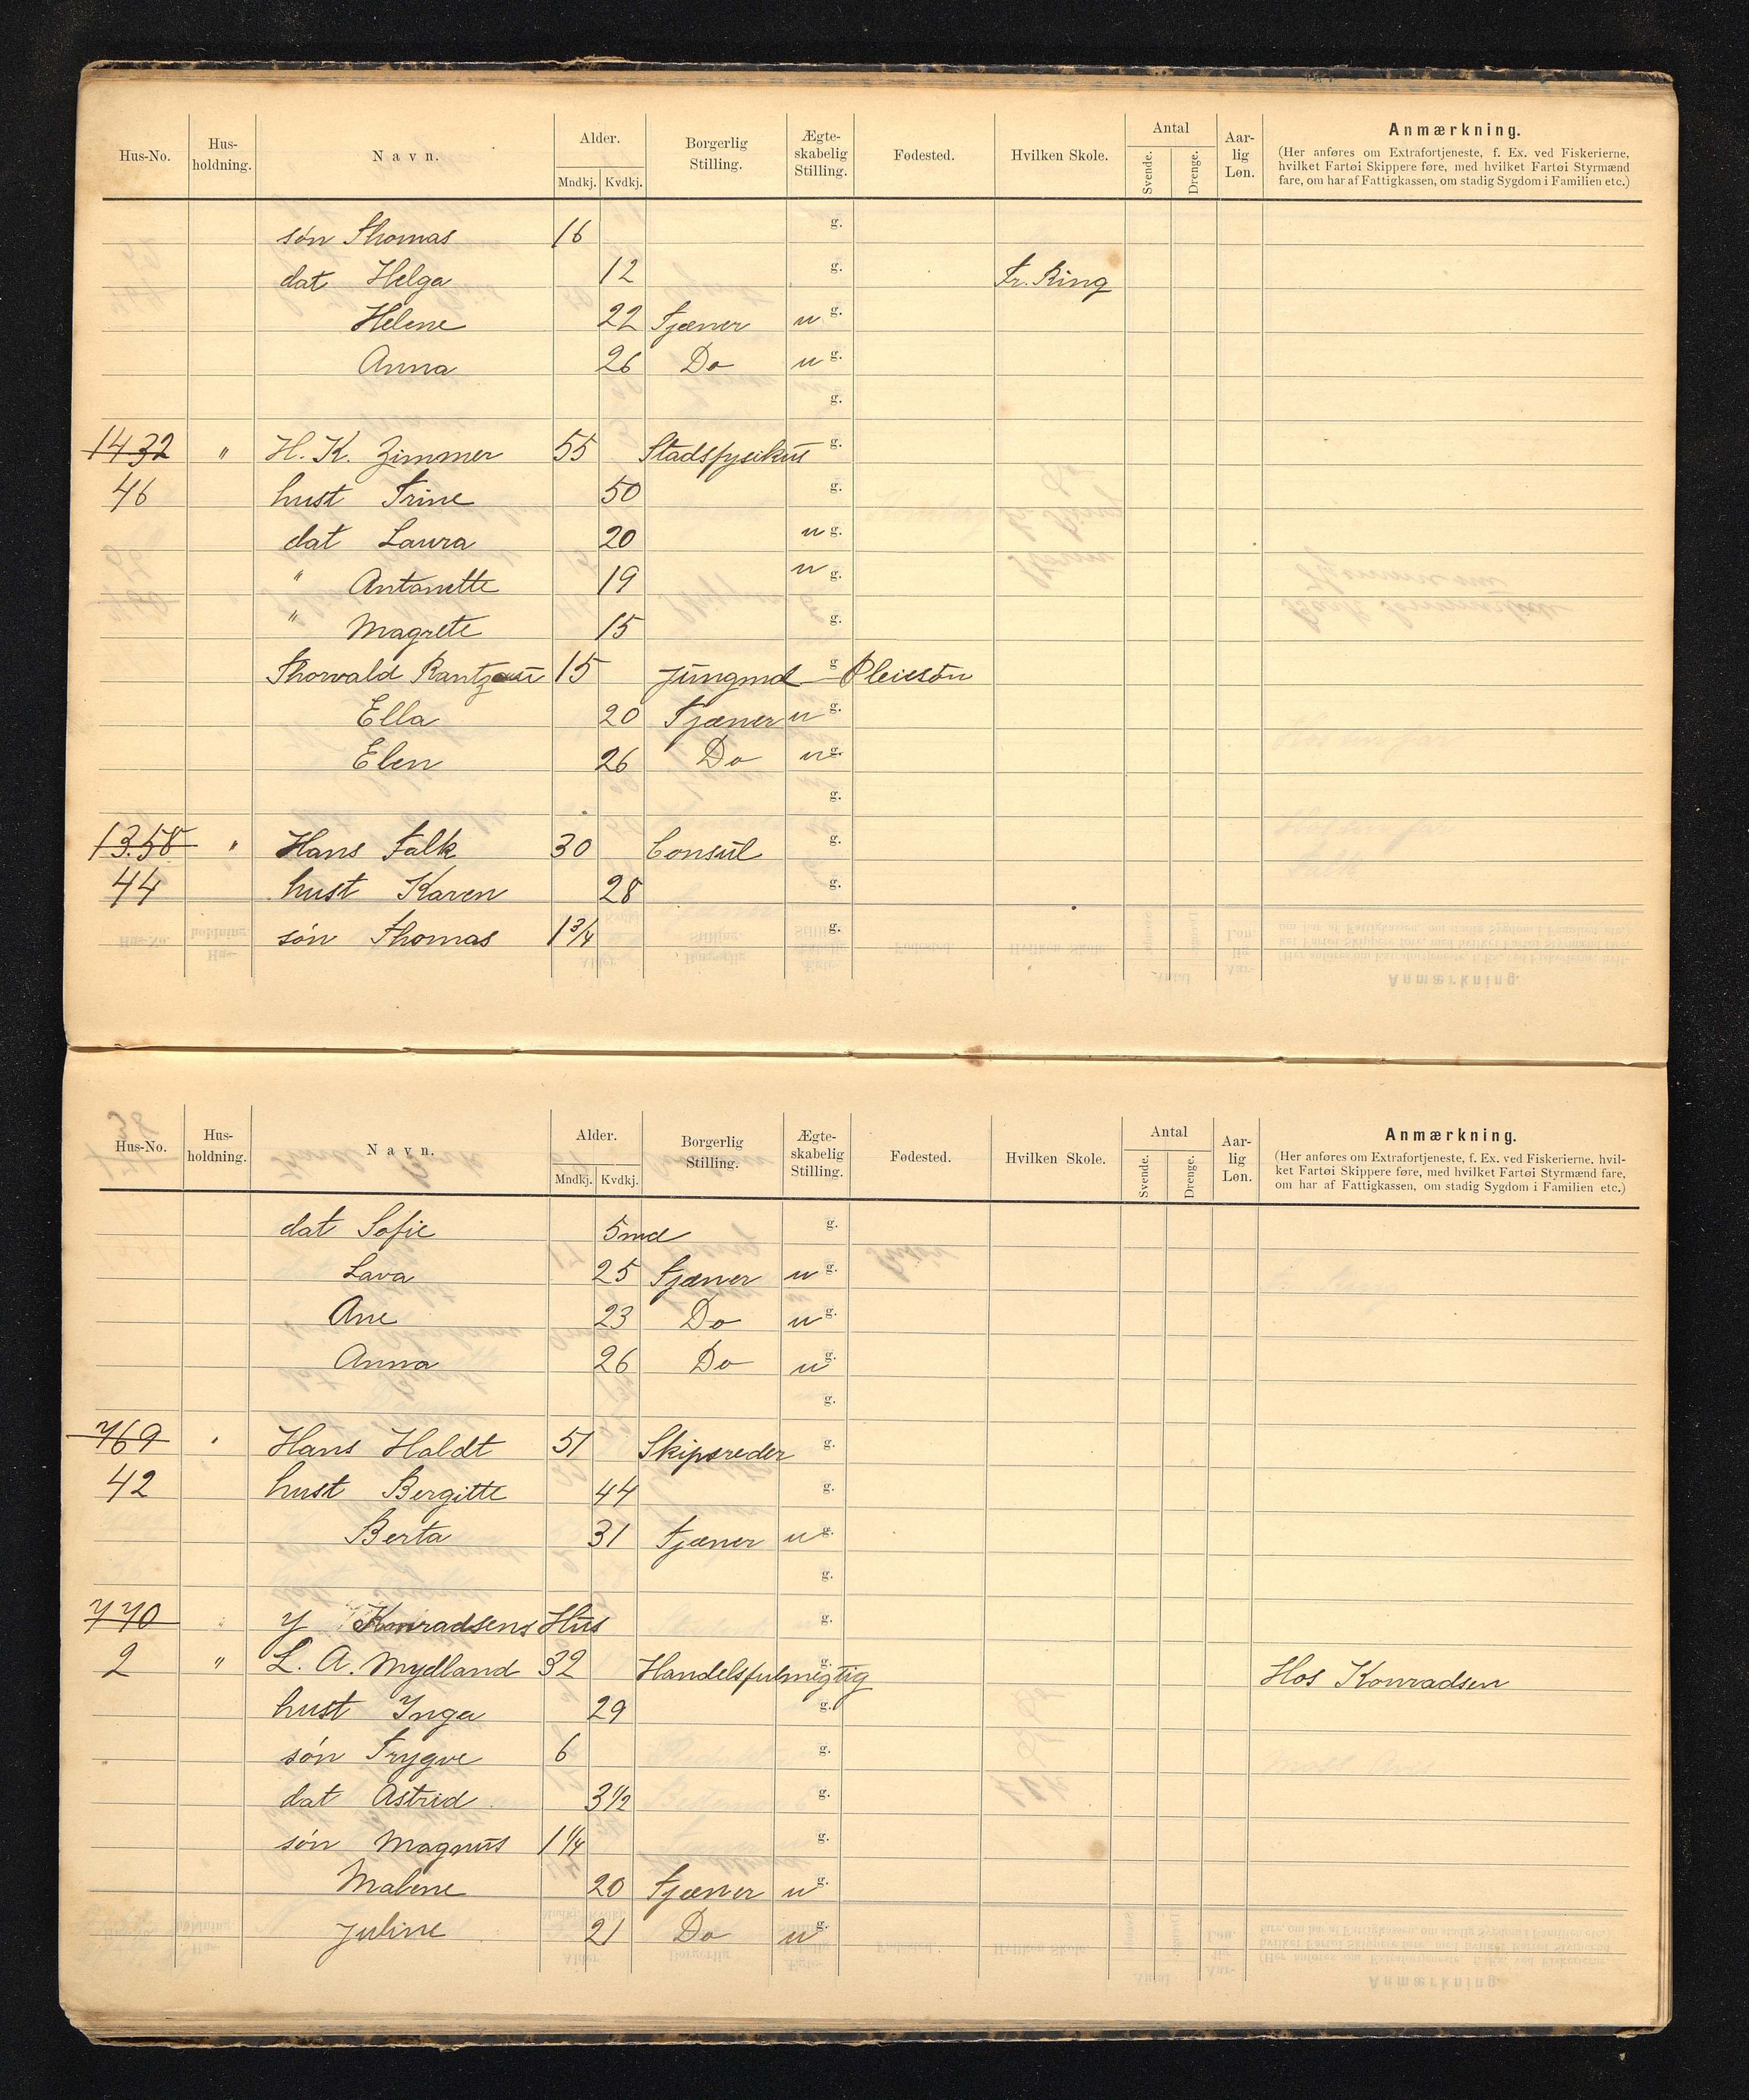 Hus-No. Hus-holdning. Navn. Alder. Mndkj. Kvdkj. Borgerlig Stilling. Ægte-skabelig Stilling. Fødested. Hvilken Skole. Antal Svende. Drenge. Aar-lig Løn. Anmærkning.
(Her anføres om Extrafortjeneste, f. Ex. ved Fiskerierne,
hvilket Fartøi Skippere føre, med hvilket Fartøi Styrmænd
fare, om har af Fattigkassen, om stadig Sygdom i Familien etc.)
søn Thomas 16 g.
dat Helga 12 g. Fr. Ring
Helene 22 Tjæner u g.
Anna 26 Do u g.
g.
1432 " H. K. Zimmer 55 Stadsfysikus g.
46 hust Trine 50 g.
dat Laura 20 u g.
" Antonette 19 u g.
" Magrete 15 g.
Thorvald Rantzau 15 Jungmd g Pleiesøn
Ella 20 Tjæner u g.
Elen 26 Do u g.
g.
1358 " Hans Falk 30 Consul g.
44 hust Karen 28 g.
søn Thomas 1 3/4 g.
Hus-No. Hus-holdning. Navn. Alder. Mndkj. Kvdkj. Borgerlig Stilling. Ægte-skabelig Stilling. Fødested. Hvilken Skole. Antal Svende. Drenge. Aar-lig Løn. Anmærkning.
(Her anføres om Extrafortjeneste, f. Ex. ved Fiskerierne, hvil-
ket Fartøi Skippere føre, med hvilket Fartøi Styrmænd fare,
om har af Fattigkassen, om stadig Sygdom i Familien etc.)
dat Sofie 5md g.
Lava 25 Tjæner u g.
Ane 23 Do u g.
Anna 26 Do u g.
g.
769 " Hans Holdt 51 Skipsreder g.
42 hust Bergitte 44 g.
Berta 31 Tjæner u g.
g.
770 " Y Konradsens Hus g.
2 " L. A. Mydland 32 Handelsfulmegtig g. Hos Konradsen
hust Inga 29 g.
søn Trygve 6 g.
dat Astrid 3 1/2 g.
søn Magnus 1 1/4 g.
Malene 20 Tjæner u g.
Juline 21 Do u g.